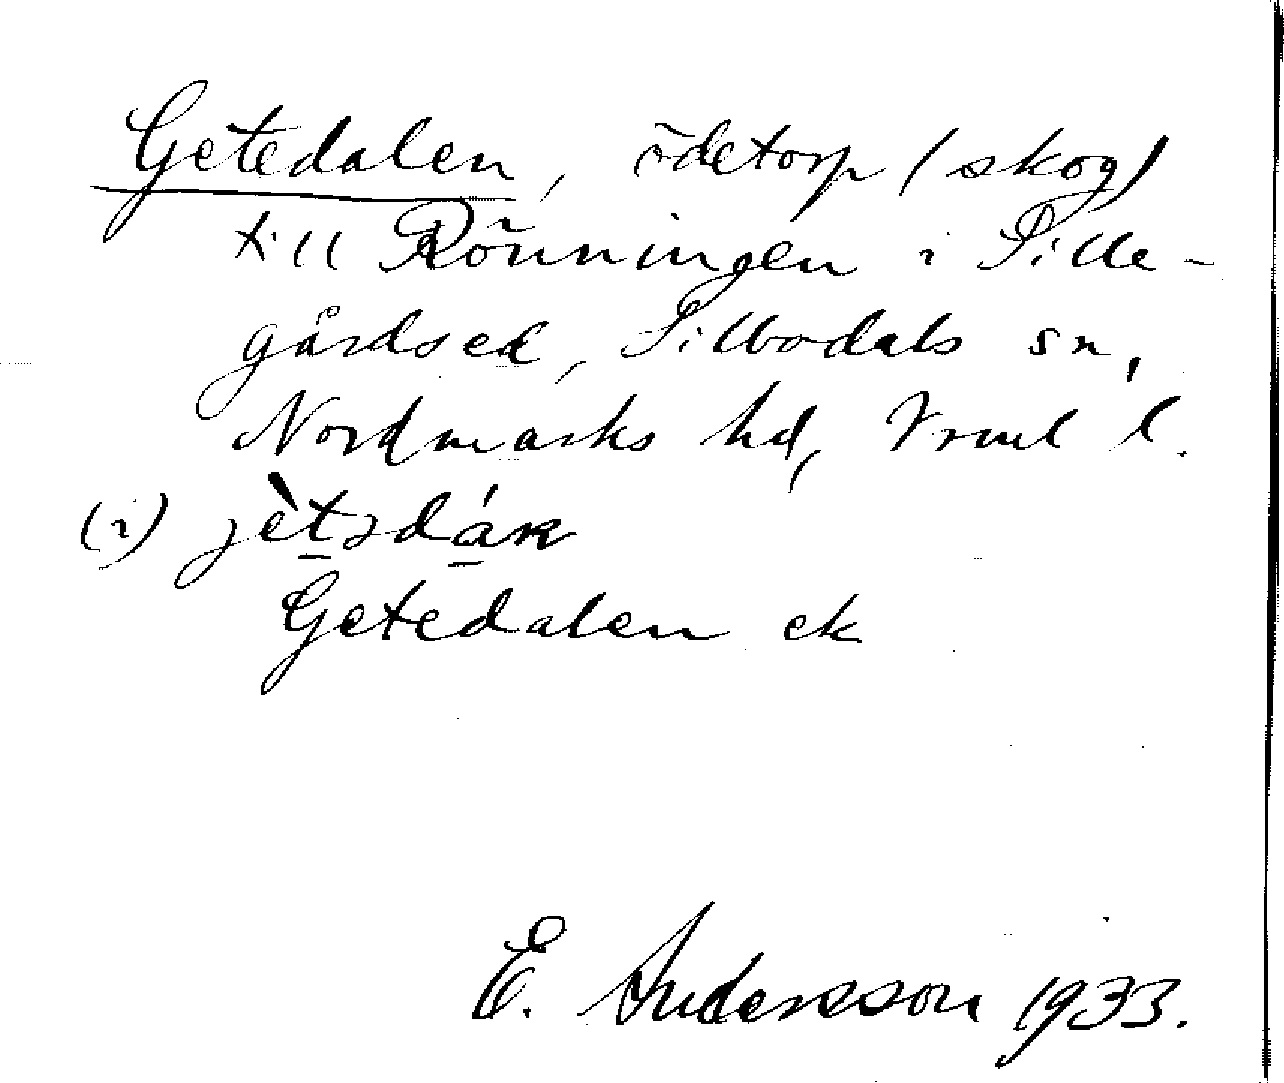 Getedalen, ödetorp (skog)
till Rönningen i Sille-
gårdsed, Sillbodals sn,
Nordmarks hd, Vrml l.
(i)
Getedalen ek
E. Andersson 1933.